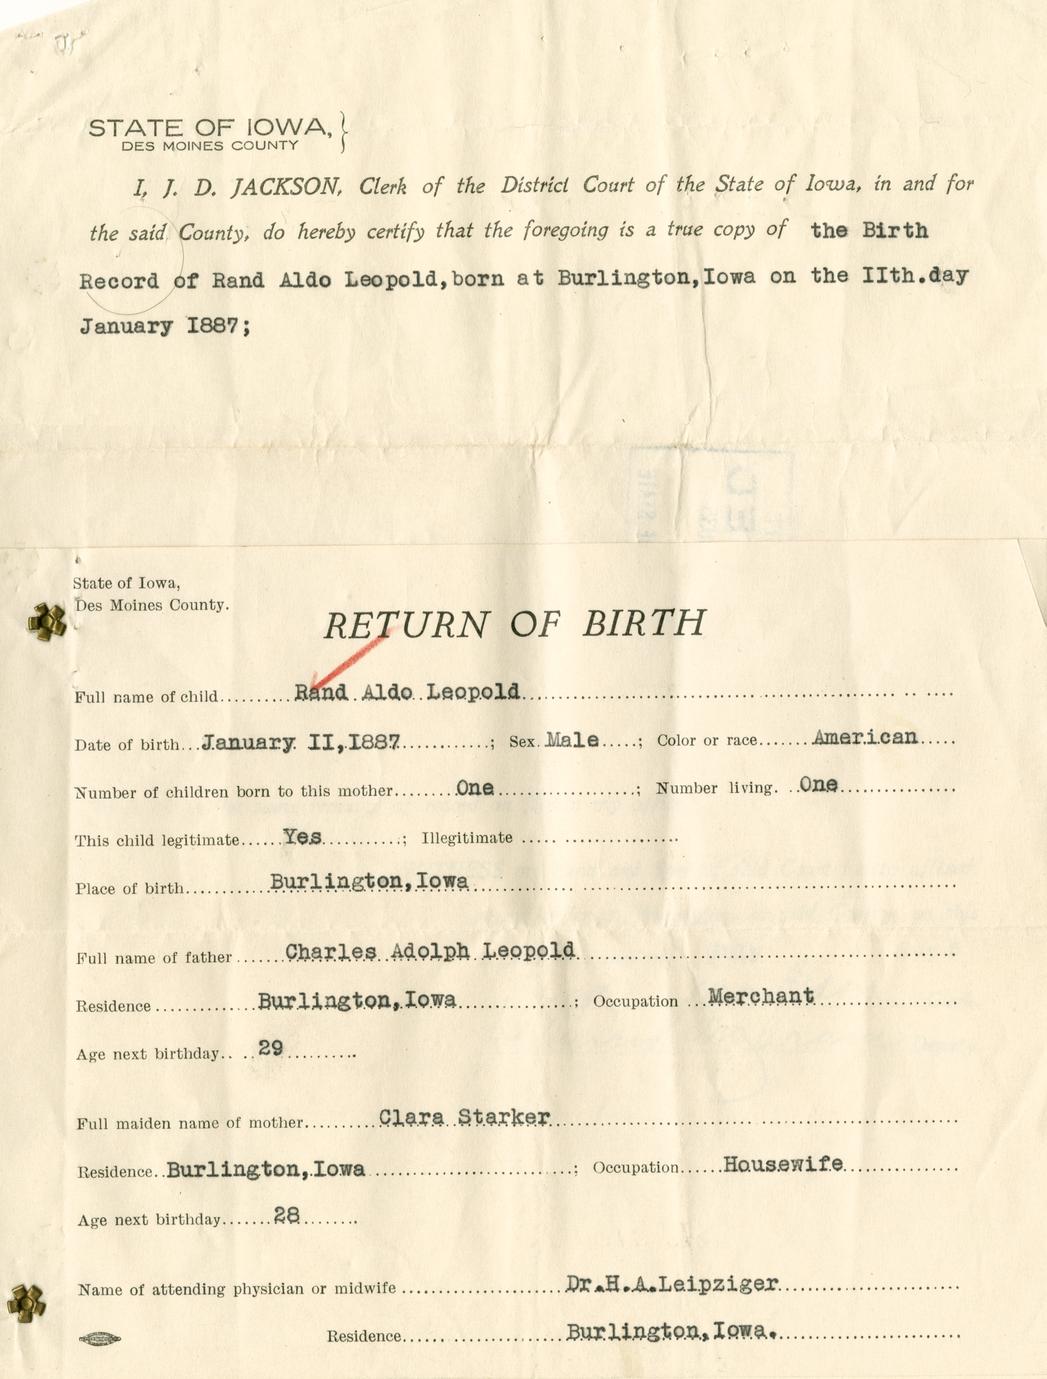 STATE OF IOWA,
DES MOINES COUNTY
I, J. D. JACKSON, Clerk of the District Court of the State of Iowa, in and for
the said County, do hereby certify that the foregoing is a true copy of the Birth
Record of Rand Aldo Leopold,born at Burlington,Iowa on the IIth.day
January I887;
State of Iowa,
Des Moines County.
RETURN OF BIRTH
Full name of child.........Rand Aldo Leopold
Date of birth...January II,I887............; Sex.Male.....; Color or race.......American.....
Number of children born to this mother........One..................; Number living. ..One...............
This child legitimate......Yes...........; Illegitimate ..... ...............
Place of birth...........Burlington,Iowa
Full name of father.......Charles Adolph Leopold
Residence.............Burlington,Iowa...............; Occupation ...Merchant
Age next birthday.. ..29..........
Full maiden name of mother..........Clara Starker
Residence..Burlington,Iowa..........................; Occupation......Housewife
Age next birthday.......28........
Name of attending physician or midwife.......................Dr.H.A.Leipziger
Residence...... ...............Burlington,Iowa.